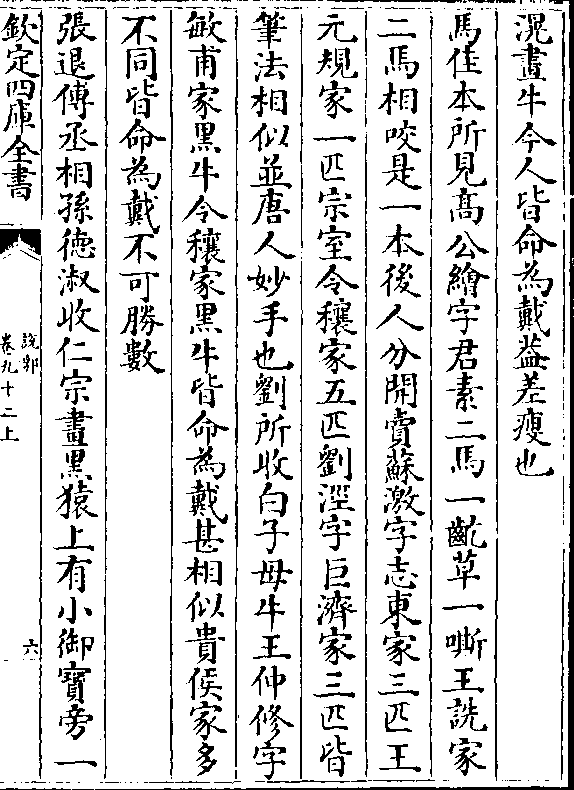 滉畫牛今人皆命為戴葢差瘦也
馬佳本所見髙公繪字君素二馬一齕草一嘶王詵家
二馬相咬是一本後人分開賣蘇激字志東家三匹王
元規家一匹宗室令穰家五匹劉涇字巨濟家三匹皆
筆法相似並唐人妙手也劉所收白子母牛王仲修字
敏甫家黒牛令穰家黒牛皆命為戴甚相似貴侯家多
不同皆命為戴不可勝數
張退傅丞相孫徳淑收仁宗畫黒猿上有小御寶旁一
欽定四庫全書
說郛
卷九十二上
六